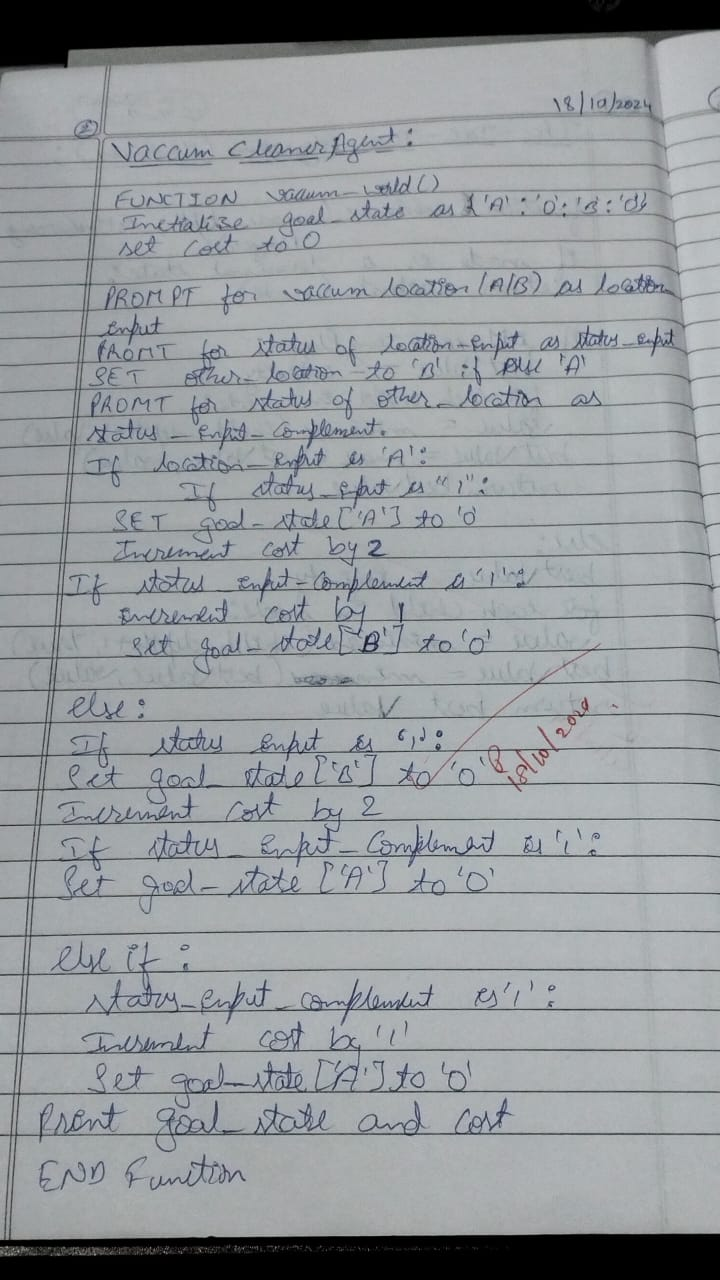 18/10/2024
2
Vaccum Cleaner Agent:
FUNCTION vaccum-world()
Inetialise goal-state as {'A':'0':'B':'0'}
set cost to 0
PROMPT for vaccum location (A/B) as location
enput
PROMT for status of location-enput as status-enput
SET other-location to 'B' if else 'A'
PROMT for status of other-location as
status-enput-complement.
If location-enput es 'A':
If status-enput es "1":
SET goal-state['A'] to '0
Increment cost by 2
If status enput-complement es '1':
encrement cost by 1
Set goal-state['B'] to '0'
else:
If status enput es '1':
Set goal-state['B'] to '0'
18/10/2024
Increment cost by 2
If status-enput-complement es '1':
Set goal-state['A'] to '0'
else if:
status-enput-complement es '1':
Increment cost by '1'
Set goal-state['A'] to '0'
Prent goal-state and cost
END Function